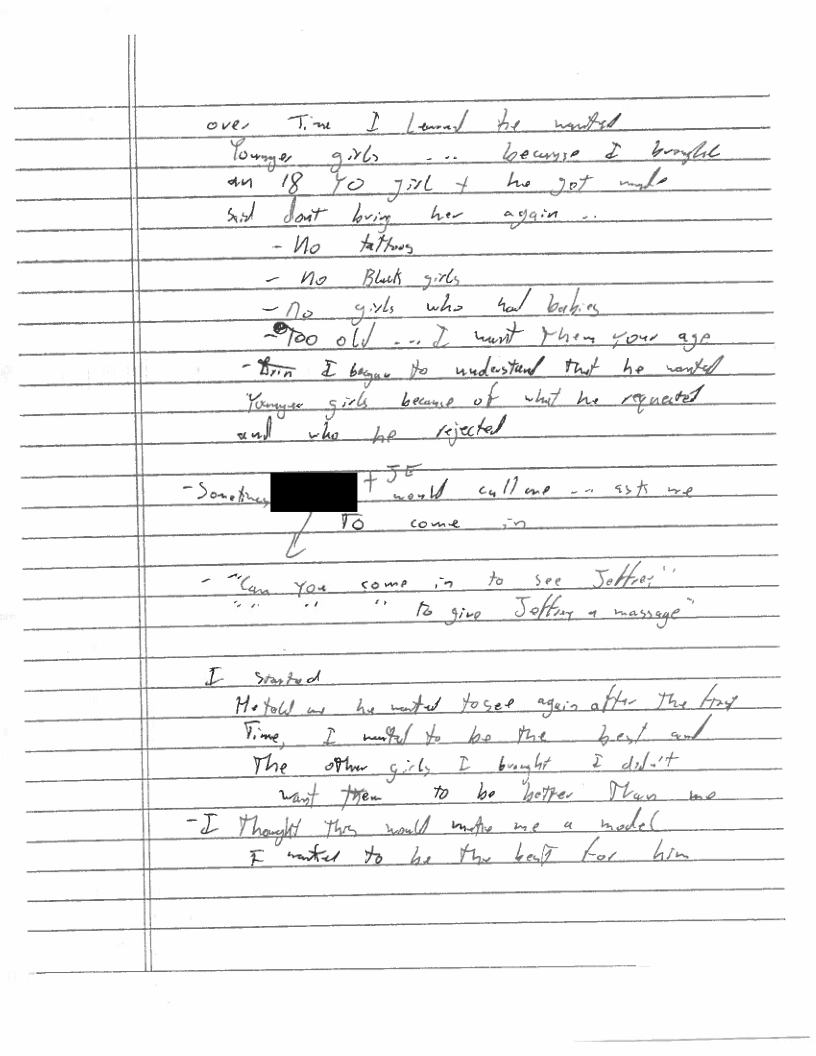 over Time I learned he wanted
Younger girls ... because I brought
an 18 YO girl + he got mad
said don't bring her again ..
- No tattoos
- no Black girls
- no girls who had babies
- Too old ... I want them your age
- I began to understand that he wanted
Younger girls because of what he requested
and who he rejected
- Sometimes + JE would call me ... asks me
To come in
- "Can you come in to see Jeffrey"
" " " " " to give Jeffrey a massage"
I started
He told me he wanted to see again after the first
Time, I wanted to be the best and
The other girls I brought I didn't
want them to be better Than me
- I Thought This would make me a model
I wanted to be the best for him